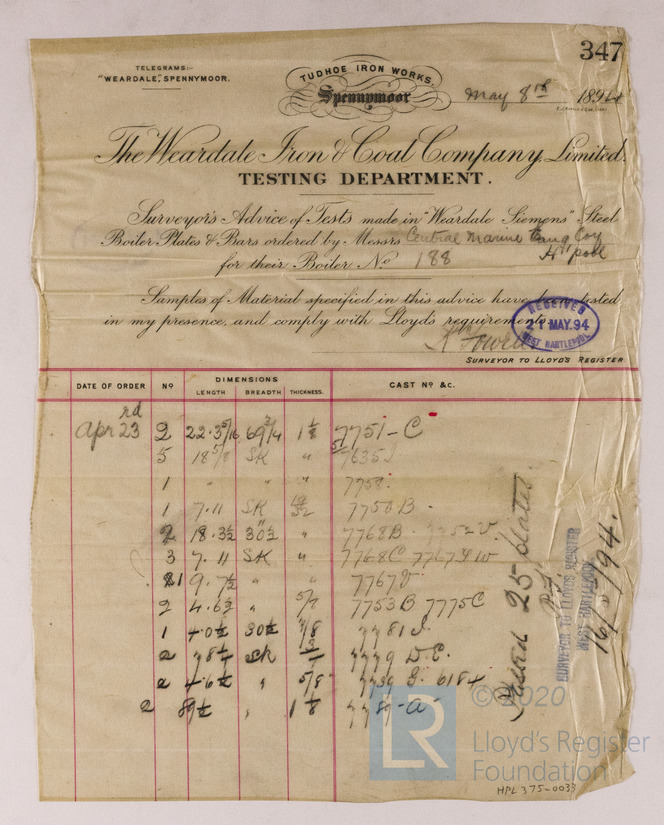 347
TELEGRAMS:-
"WEARDALE", SPENNYMOOR.
TUDHOE IRON WORKS,
Spennymoor May 8th 1894
The Weardale Iron & Coal Company, Limited.
TESTING DEPARTMENT.
Surveyor's Advice of Tests made in "Weardale Siemens" Steel
Boiler Plates & Bars ordered by Messrs Central Marine Eng Coy
H'pool
for their Boiler No 188
Samples of Material specified in this advice have been tested
in my presence, and comply with Lloyds requirements.
RECEIVED
21 MAY.94
WEST HARTLEPOOL
SURVEYOR TO LLOYD'S REGISTER
DATE OF ORDER No DIMENSIONS CAST No &c.
LENGTH BREADTH THICKNESS.
Apr 23rd 2 22.3 5/16 69 3/4 1 1/8 7751-C
5 18 5/8 SK " 7635
1 " " " 7758
1 7.11 SK 19/32 7750 B
2 18.3 1/2 30 1/2 " 7768B
3 7.11 SK " 7768C
1 9.7 1/2 " " 7767
2 4.6 1/2 " 5/8 7753B 7775C
1 4.0 1/2 30 1/2 7/8 7781
2 7 8 1/2 SK 7779 D.C.
2 4.6 1/2 " 5/8 7739 6184
2 8 9 1/2 " 1 1/8 7789-A
Tested 25 plates.
SURVEYOR TO LLOYDS REGISTER
WEST HARTLEPOOL
16/5/94.
© 2020
LR
Lloyd's Register
Foundation
HPL375-0033